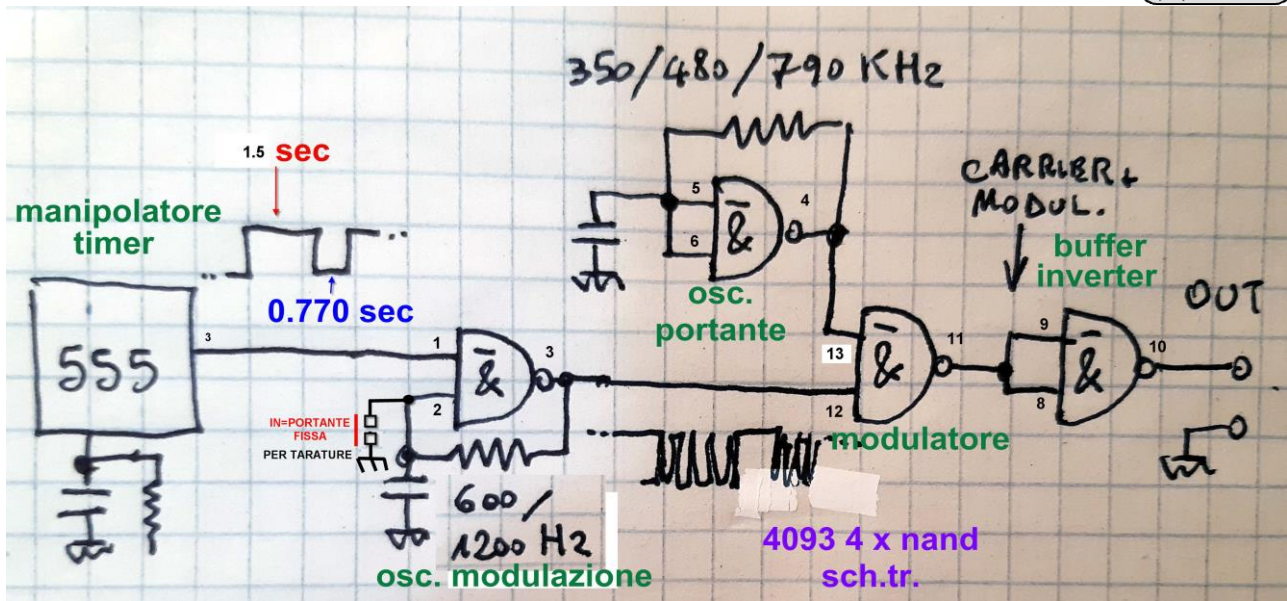 350/480/790 KHz
1.5 sec
manipolatore
timer
0.770 sec
555
3
1
2
&
3
IN=PORTANTE
FISSA
PER TARATURE
600/
1200 Hz
osc. modulazione
5
6
&
4
osc.
portante
13
12
&
11
modulatore
CARRIER+
MODUL.
buffer
inverter
9
8
&
10
OUT
4093 4 x nand
sch.tr.